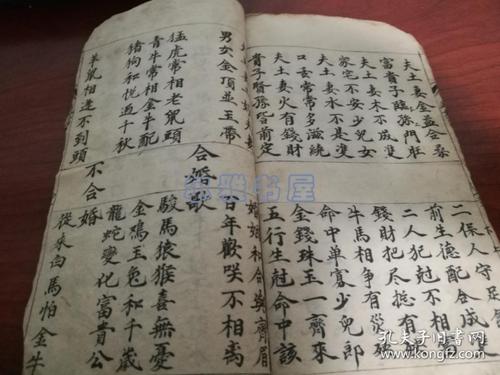 夫土妻金益金
富貴子臨孫門旺
夫土妻木不成雙
家宅不安少兒女
夫土妻水不是雙
口舌常常多滋繞
夫土妻火有錢財
貴子賢孫皆前定
二保人守足
前生德配合成
二人犯尅不相
錢財把尽总有
牛馬相爭有災
命中單寡少兒郎
金錢珠玉一齊來
五行生尅命中該
齊眉
男女金頂並玉帶
合婚歌
百年歡咲不相离
猛虎常相老鼠頭
駿馬猿猴喜無憂
青牛常相金牛配
金鳮玉兔和千歲
豬狗和悦過千秋
龍蛇變化富貴公
不合婚
羊鼠相逢不到頭
從來白馬怕金牛
雅书屋
孔夫子旧书网
www.kongfz.com